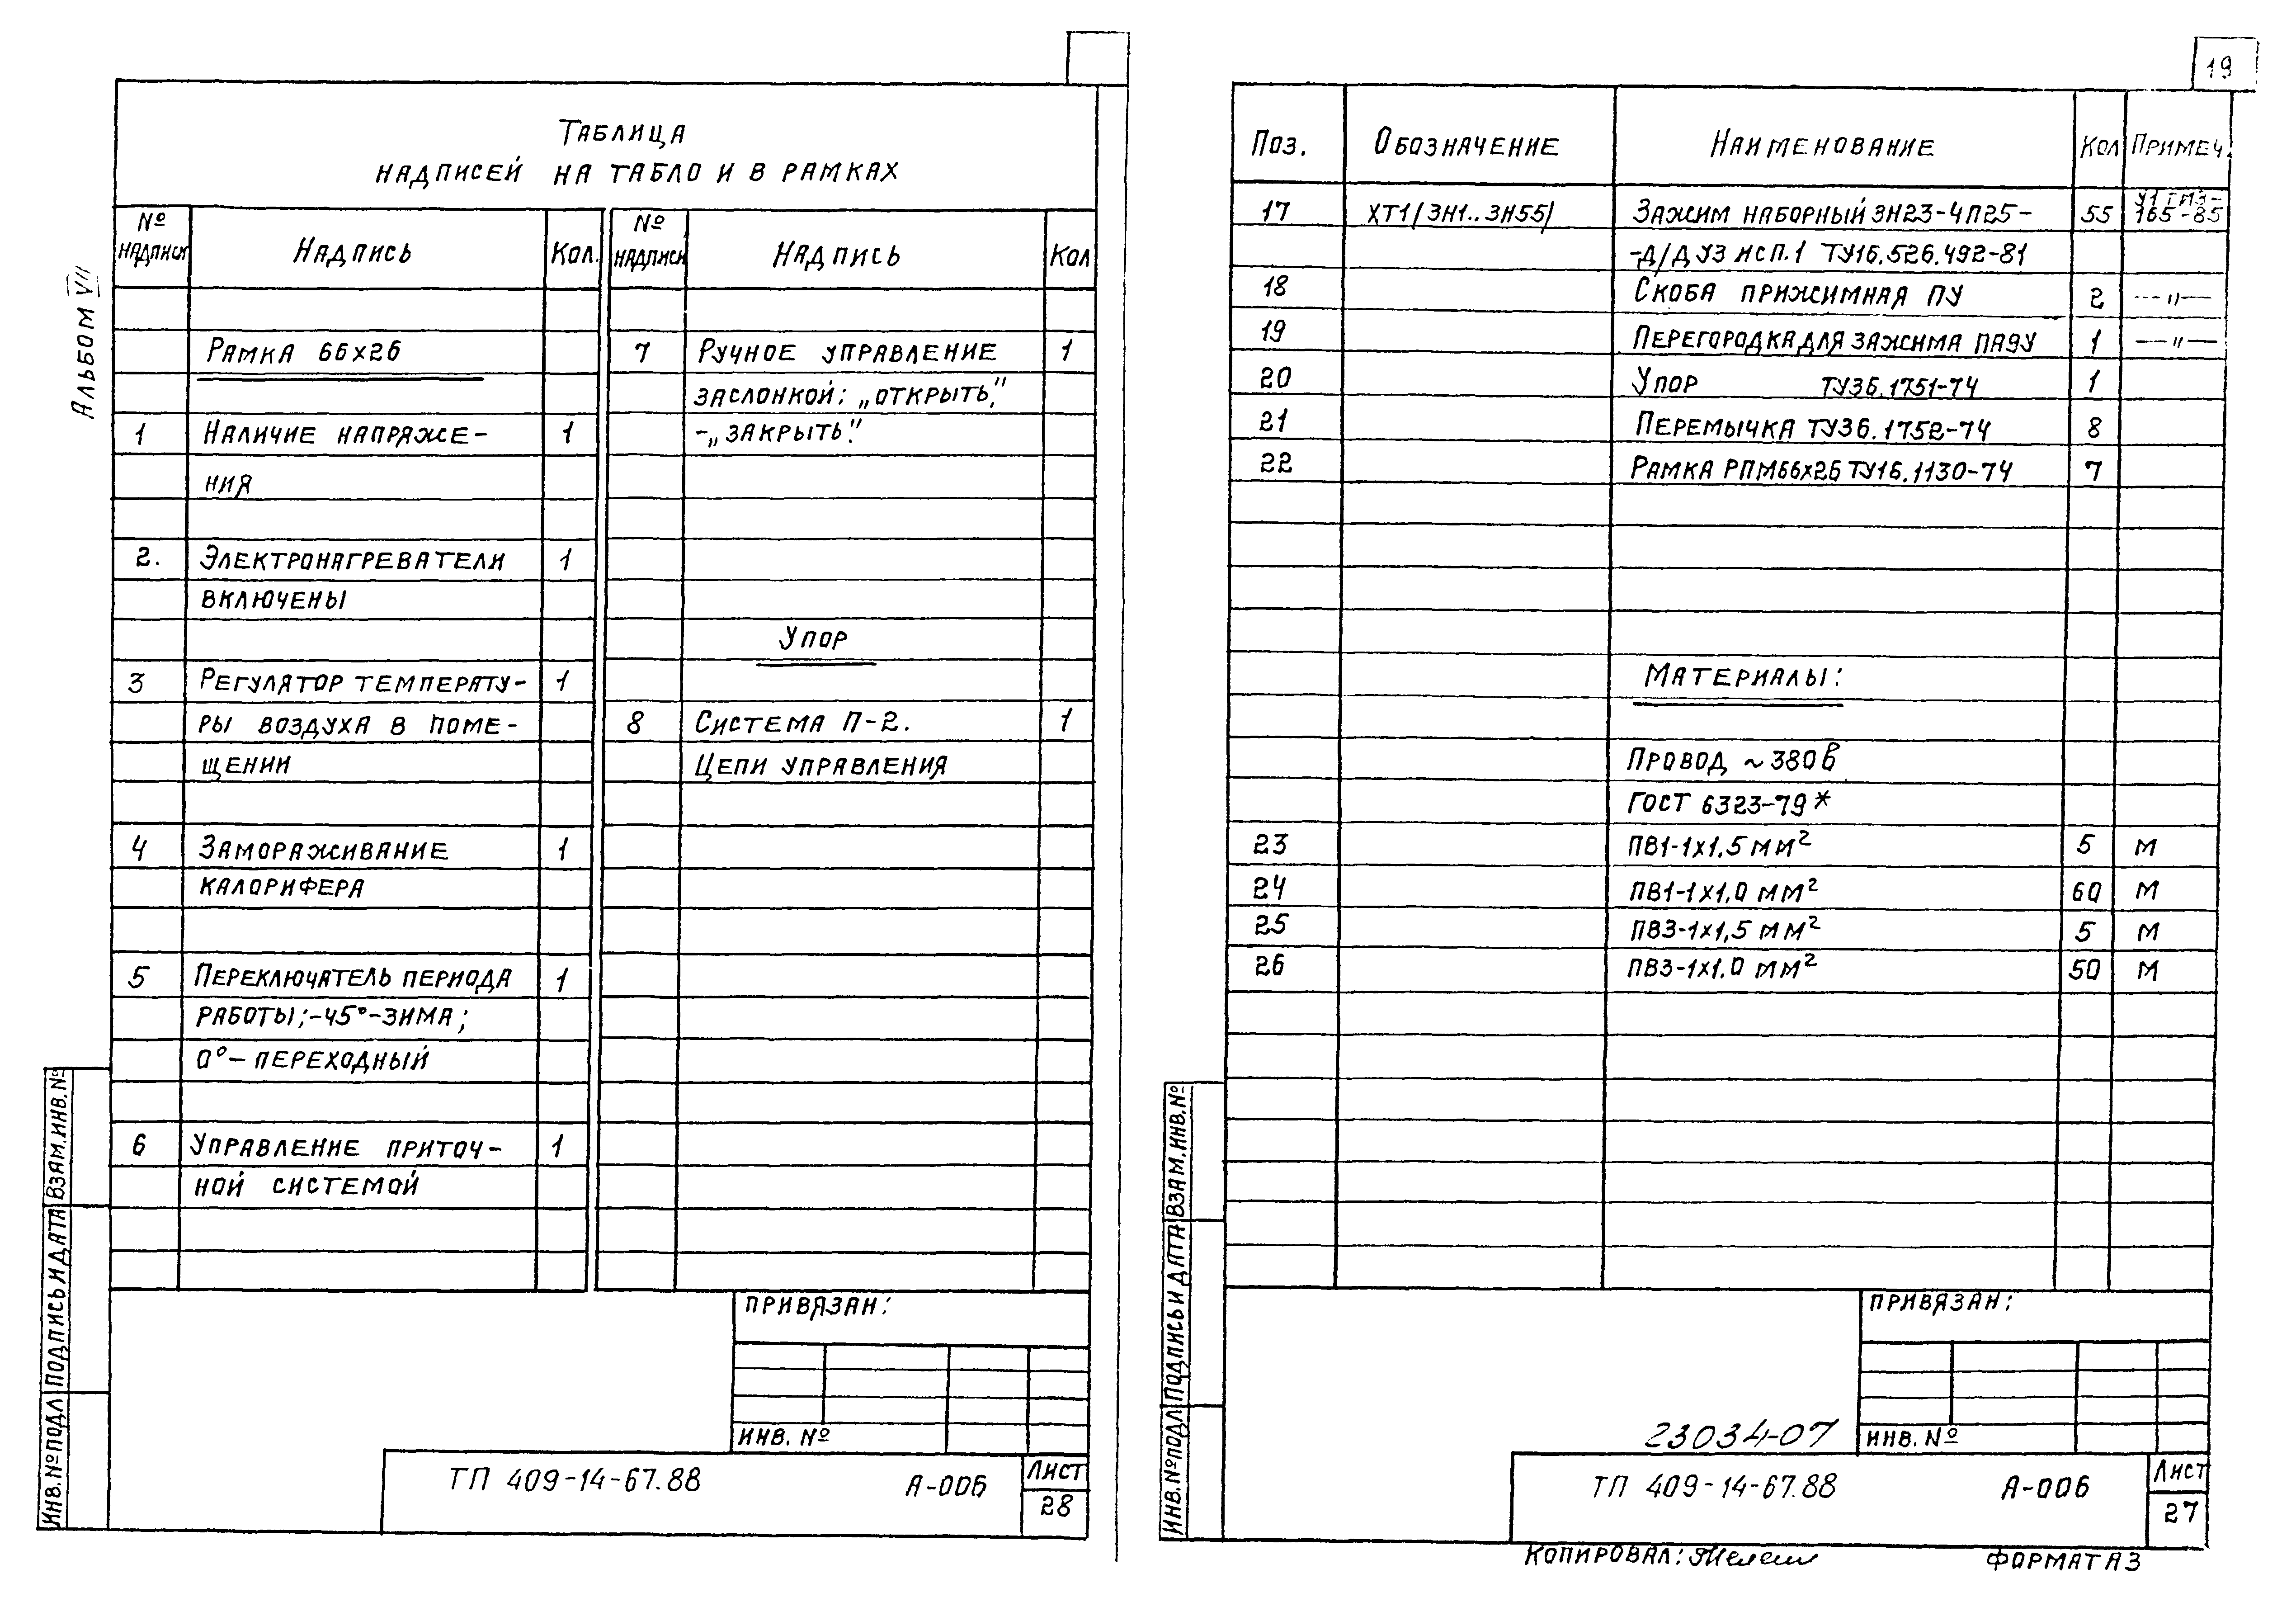 Альбом VII
Таблица
надписей на табло и в рамках
№ надписи Надпись Кол. № надписи Надпись Кол
Рамка 66х26
1 Наличие напряже- 1
ния
2. Электронагреватели 1
включены
3 Регулятор температу- 1
ры воздуха в поме-
щении
4 Замораживание 1
калорифера
5 Переключатель периода 1
работы;-45°-зима;
0°-переходный
6 Управление приточ- 1
ной системой
7 Ручное управление 1
заслонкой: „открыть,"
-„закрыть".
Упор
8 Система П-2. 1
Цепи управления
Привязан:
Инв. №
ТП 409-14-67.88 А-006
Лист
28
Инв.№подл Подпись и дата Взам.инв.№
19
Поз. Обозначение Наименование Кол Примеч.
17 ХТ1/ЗН1..ЗН55/ Зажим наборный ЗН23-4П25- 55 165-85
-Д/Д У3 исп.1 ТУ16.526.492-81
18 Скоба прижимная ПУ 2 —"—
19 Перегородка для зажима ПАЭУ 1 —"—
20 Упор ТУ36.1751-74 1
21 Перемычка ТУ36.1752-74 8
22 Рамка РПМ66х26 ТУ16.1130-74 7
Материалы:
Провод ~380в
ГОСТ 6323-79*
23 ПВ1-1х1,5 мм² 5 м
24 ПВ1-1х1,0 мм² 60 м
25 ПВ3-1х1,5 мм² 5 м
26 ПВ3-1х1,0 мм² 50 м
Привязан:
Инв. №
23034-07
ТП 409-14-67.88 А-006
Лист
27
Инв.№подл Подпись и дата Взам.инв.№
Копировал:
Формат А3